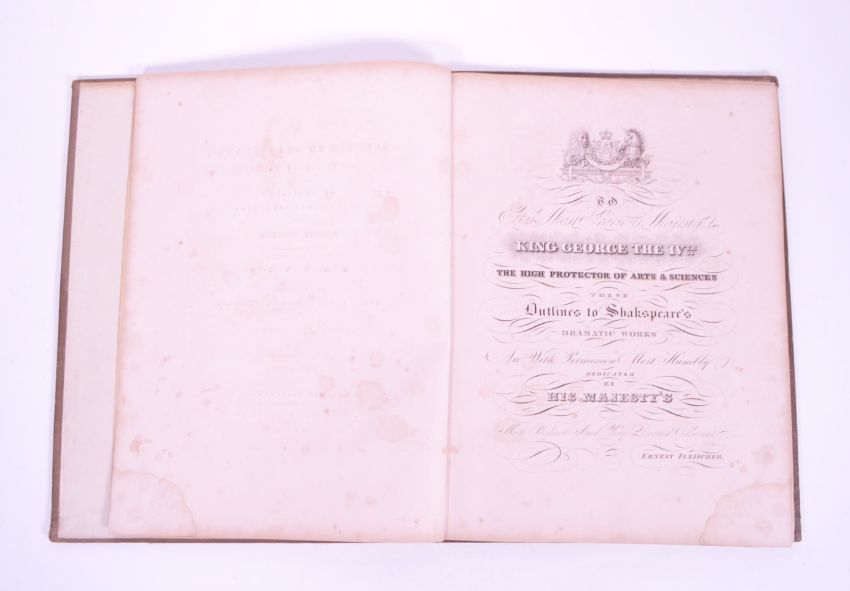 TO
His Most Gracious Majesty
KING GEORGE THE IVTH
THE HIGH PROTECTOR OF ARTS & SCIENCES
THESE
Outlines to Shakspeare's
DRAMATIC WORKS
Are With Permission Most Humbly
DEDICATED
BY
HIS MAJESTY'S
Most Devoted Servant
ERNEST FLEISCHER.